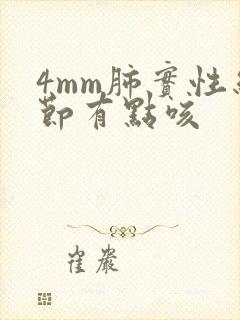 4mm肺實性結
節有點咳
崔巖